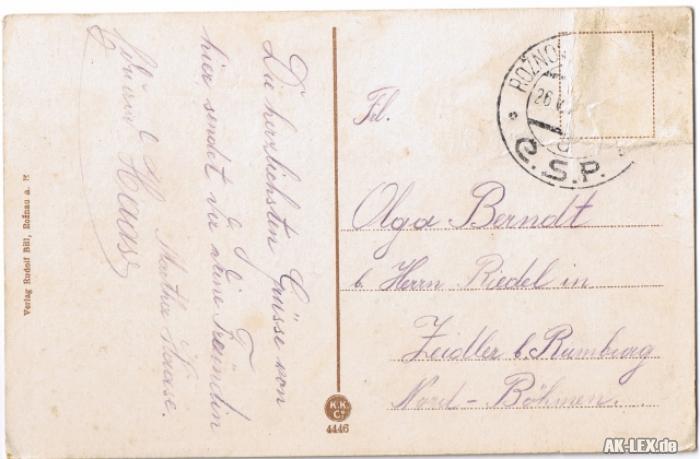 Die herzlichsten Grüsse von
hier, sendet dir deine Freundin
Martha Haase.
Edmund Haase
Verlag Rudolf Bill, Rožnau a. R
K.K.
C°
4446
ROŽNO
26 V
Č.S.P.
Frl.
Olga Berndt
b. Herrn Riedel in
Zeidler b. Rumburg
Nord-Böhmen.
AK-LEX.de